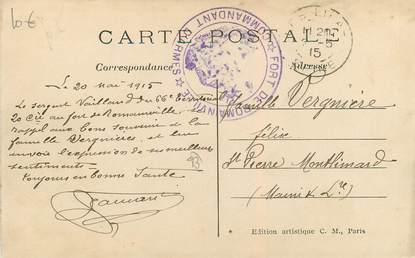 10€
CARTE POSTALE
Correspondance
Adresse
FORT DE ROMAINVILLE
COMMANDANT
ARMES
15
Le 20 Mai 1915
Le sergent Vaillant du 66e Territorial
20 Cie au fort de Romainville, se
rappel aux bons souvenir de la
famille Vergnières et leur
envoie l'expression de ses meilleurs
sentiments.
Toujours en bonne Santé
Famille Vergnière
Félix
St Pierre Montlimard
(Maine & Lre)
93
* Edition artistique C. M., Paris